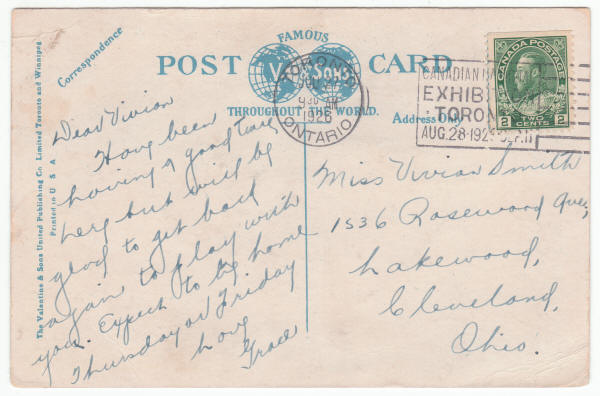 FAMOUS
POST CARD
V & Sons
THROUGHOUT THE WORLD.
Correspondence
Address Only
The Valentine & Sons United Publishing Co Limited Toronto and Winnipeg
Printed in U S A
TORONTO
930
1926
ONTARIO
CANADIAN NA
EXHIB
TORON
AUG. 28-192
CANADA POSTAGE
2 TWO CENTS 2
Dear Vivian
Have been
having a good time
here but will be
glad to get back
again to play with
you. Expect to be home
Thursday or Friday
Love
Grace
Miss Vivian Smith
1536 Rosewood Ave.,
Lakewood,
Cleveland,
Ohio.